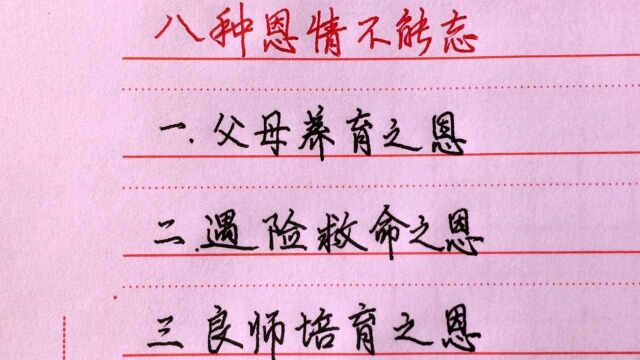 八种恩情不能忘
一.父母养育之恩
二.遇险救命之恩
三良师培育之恩